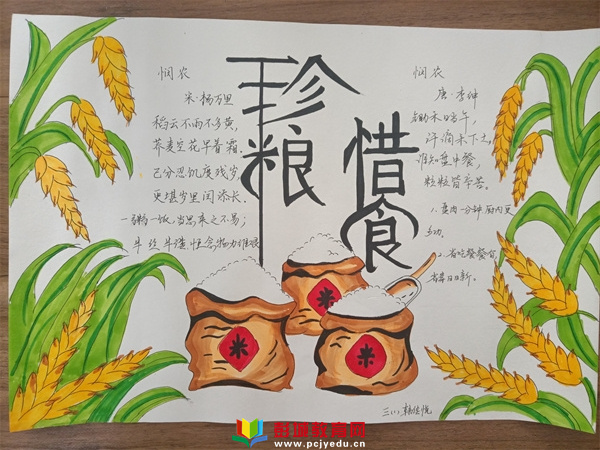 珍惜
粮食
悯农
宋·杨万里
稻云不雨不多黄,
荞麦空花早着霜。
已分忍饥度残岁
更堪岁里闰添长。
一粥一饭,当思来之不易;
半丝半缕,恒念物力维艰
悯农
唐·李绅
锄禾日当午,
汗滴禾下土。
谁知盘中餐,
粒粒皆辛苦。
1. 一分钟
2. 省吃餐餐有,
省穿日日新。
米
米
米
三(1)
彭城教育网
www.pcjyedu.cn